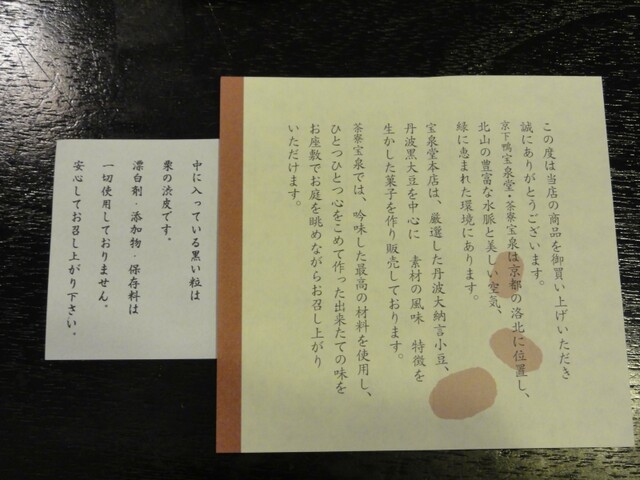 この度は当店の商品を御買い上げいただき
誠にありがとうございます。
京下鴨宝泉堂・茶寮宝泉は京都の洛北に位置し、
北山の豊富な水脈と美しい空気、
緑に恵まれた環境にあります。
宝泉堂本店は、厳選した丹波大納言小豆、
丹波黒大豆を中心に 素材の風味 特徴を
生かした菓子を作り販売しております。
茶寮宝泉では、吟味した最高の材料を使用し、
ひとつひとつ心をこめて作った出来たての味を
お座敷でお庭を眺めながらお召し上がり
いただけます。
中に入っている黒い粒は
栗の渋皮です。
漂白剤・添加物・保存料は
一切使用しておりません。
安心してお召し上がり下さい。